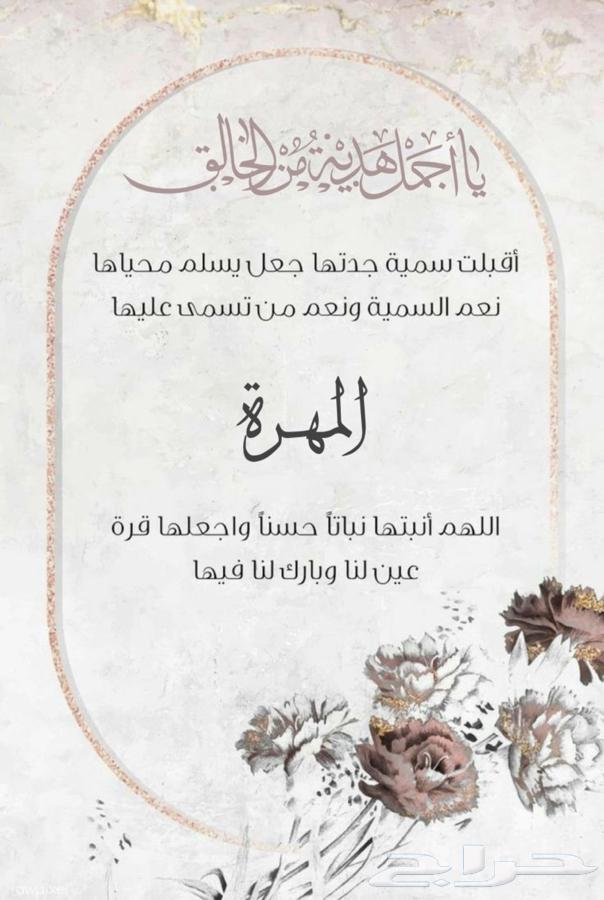 يا أجمل هدية من الخالق
أقبلت سمية جدتها جعل يسلم محياها
نعم السمية ونعم من تسمى عليها
المهرة
اللهم أنبتها نباتاً حسناً واجعلها قرة
عين لنا وبارك لنا فيها
حراج
rawpixel